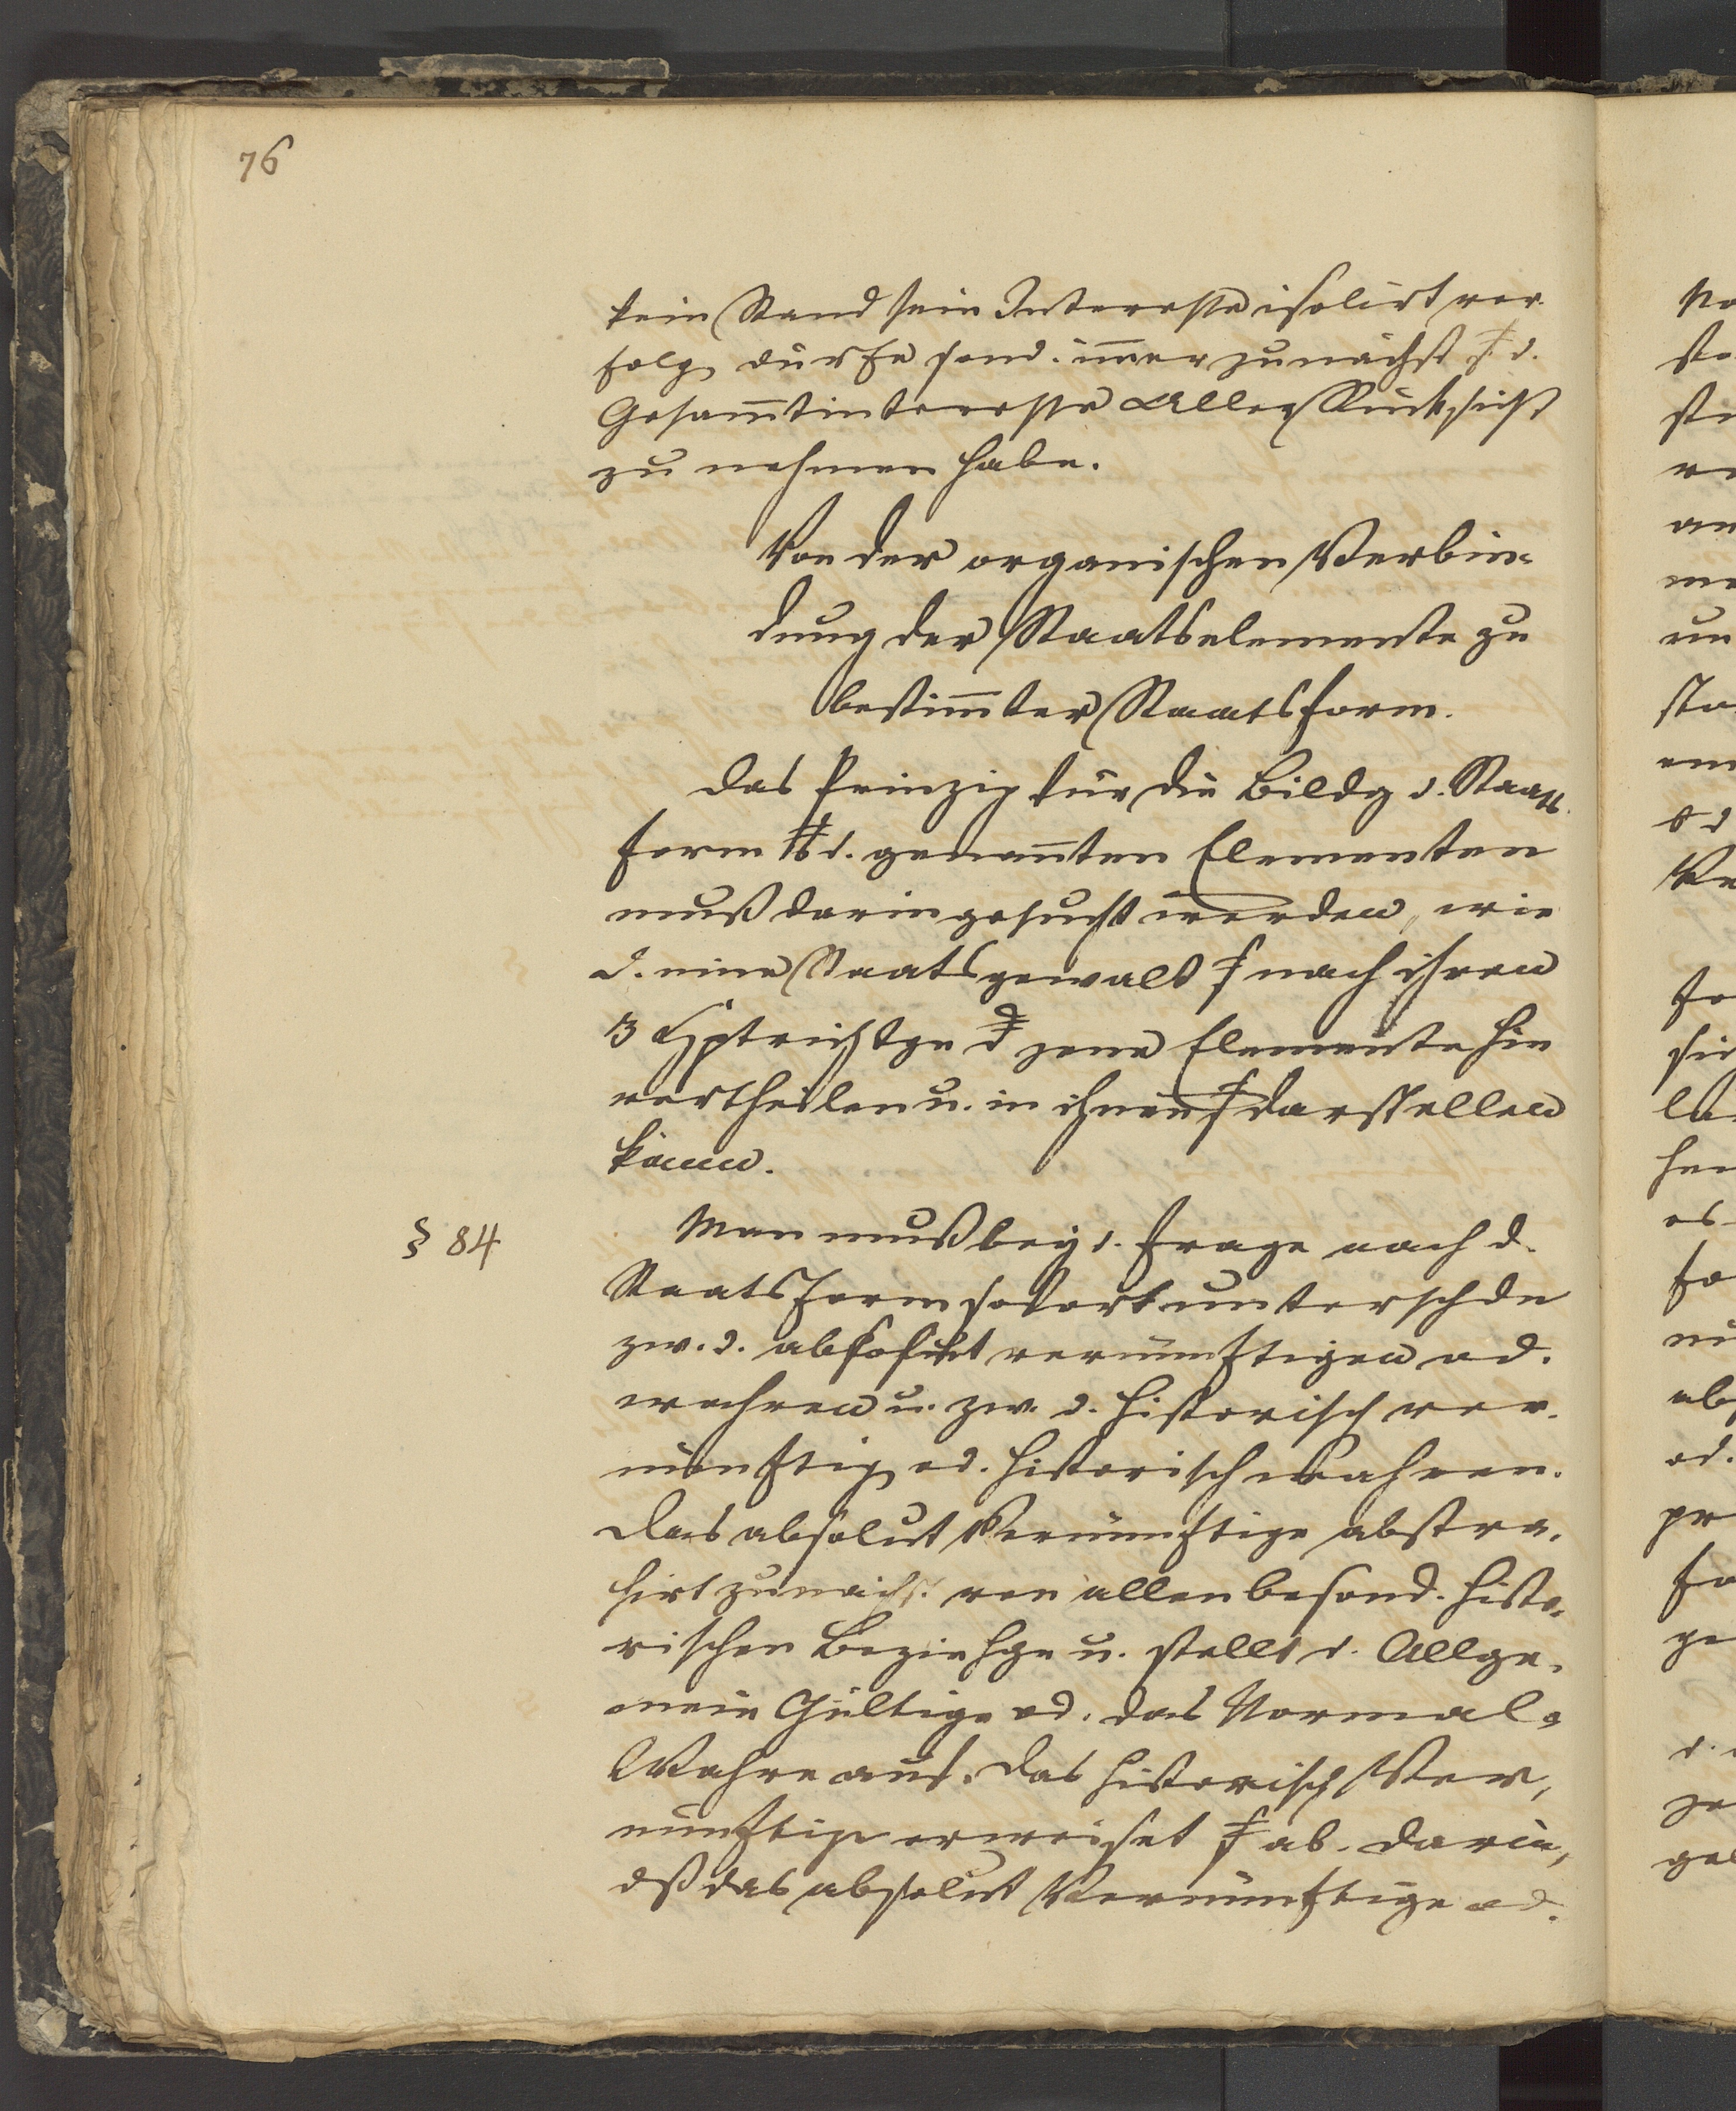 76
kein Stand sein Interesse isolirt ver-
folg. dürfe sond. im̄er zunächst d.
Gesam̄tinteresse Aller Rücksicht
zu nehmen habe.
Von der organischen Verbin-
dung der Staatselemente zu
bestim̄ter Staatsform.
Das Prinzip für die Bildg d. Staats-
form d. genan̄ten Elementen
muß darin gesucht werden, wie
d. eine Staatsgewalt nach ihren
3 Hptrichtge jene Elemente hin
vertheilen u. in ihnen darstellen
könne.
§ 84 Man muß bey d. Frage nach d.
Staatsform sofort unterschdn
zw. d. absolut vernünftigen od.
wahren u. zw. d. historisch ver-
nünftig. od. historisch wahren.
Das absolut Vernünftige abstra-
hirt zunächst von allen besond. histo-
rischen Beziehge u. stellt d. Allge-
mein Gültige od. das Normal-
Wahre auf. Das historisch Ver-
nünftige erweiset ab. darin,
dß das absolut Vernünftige od.